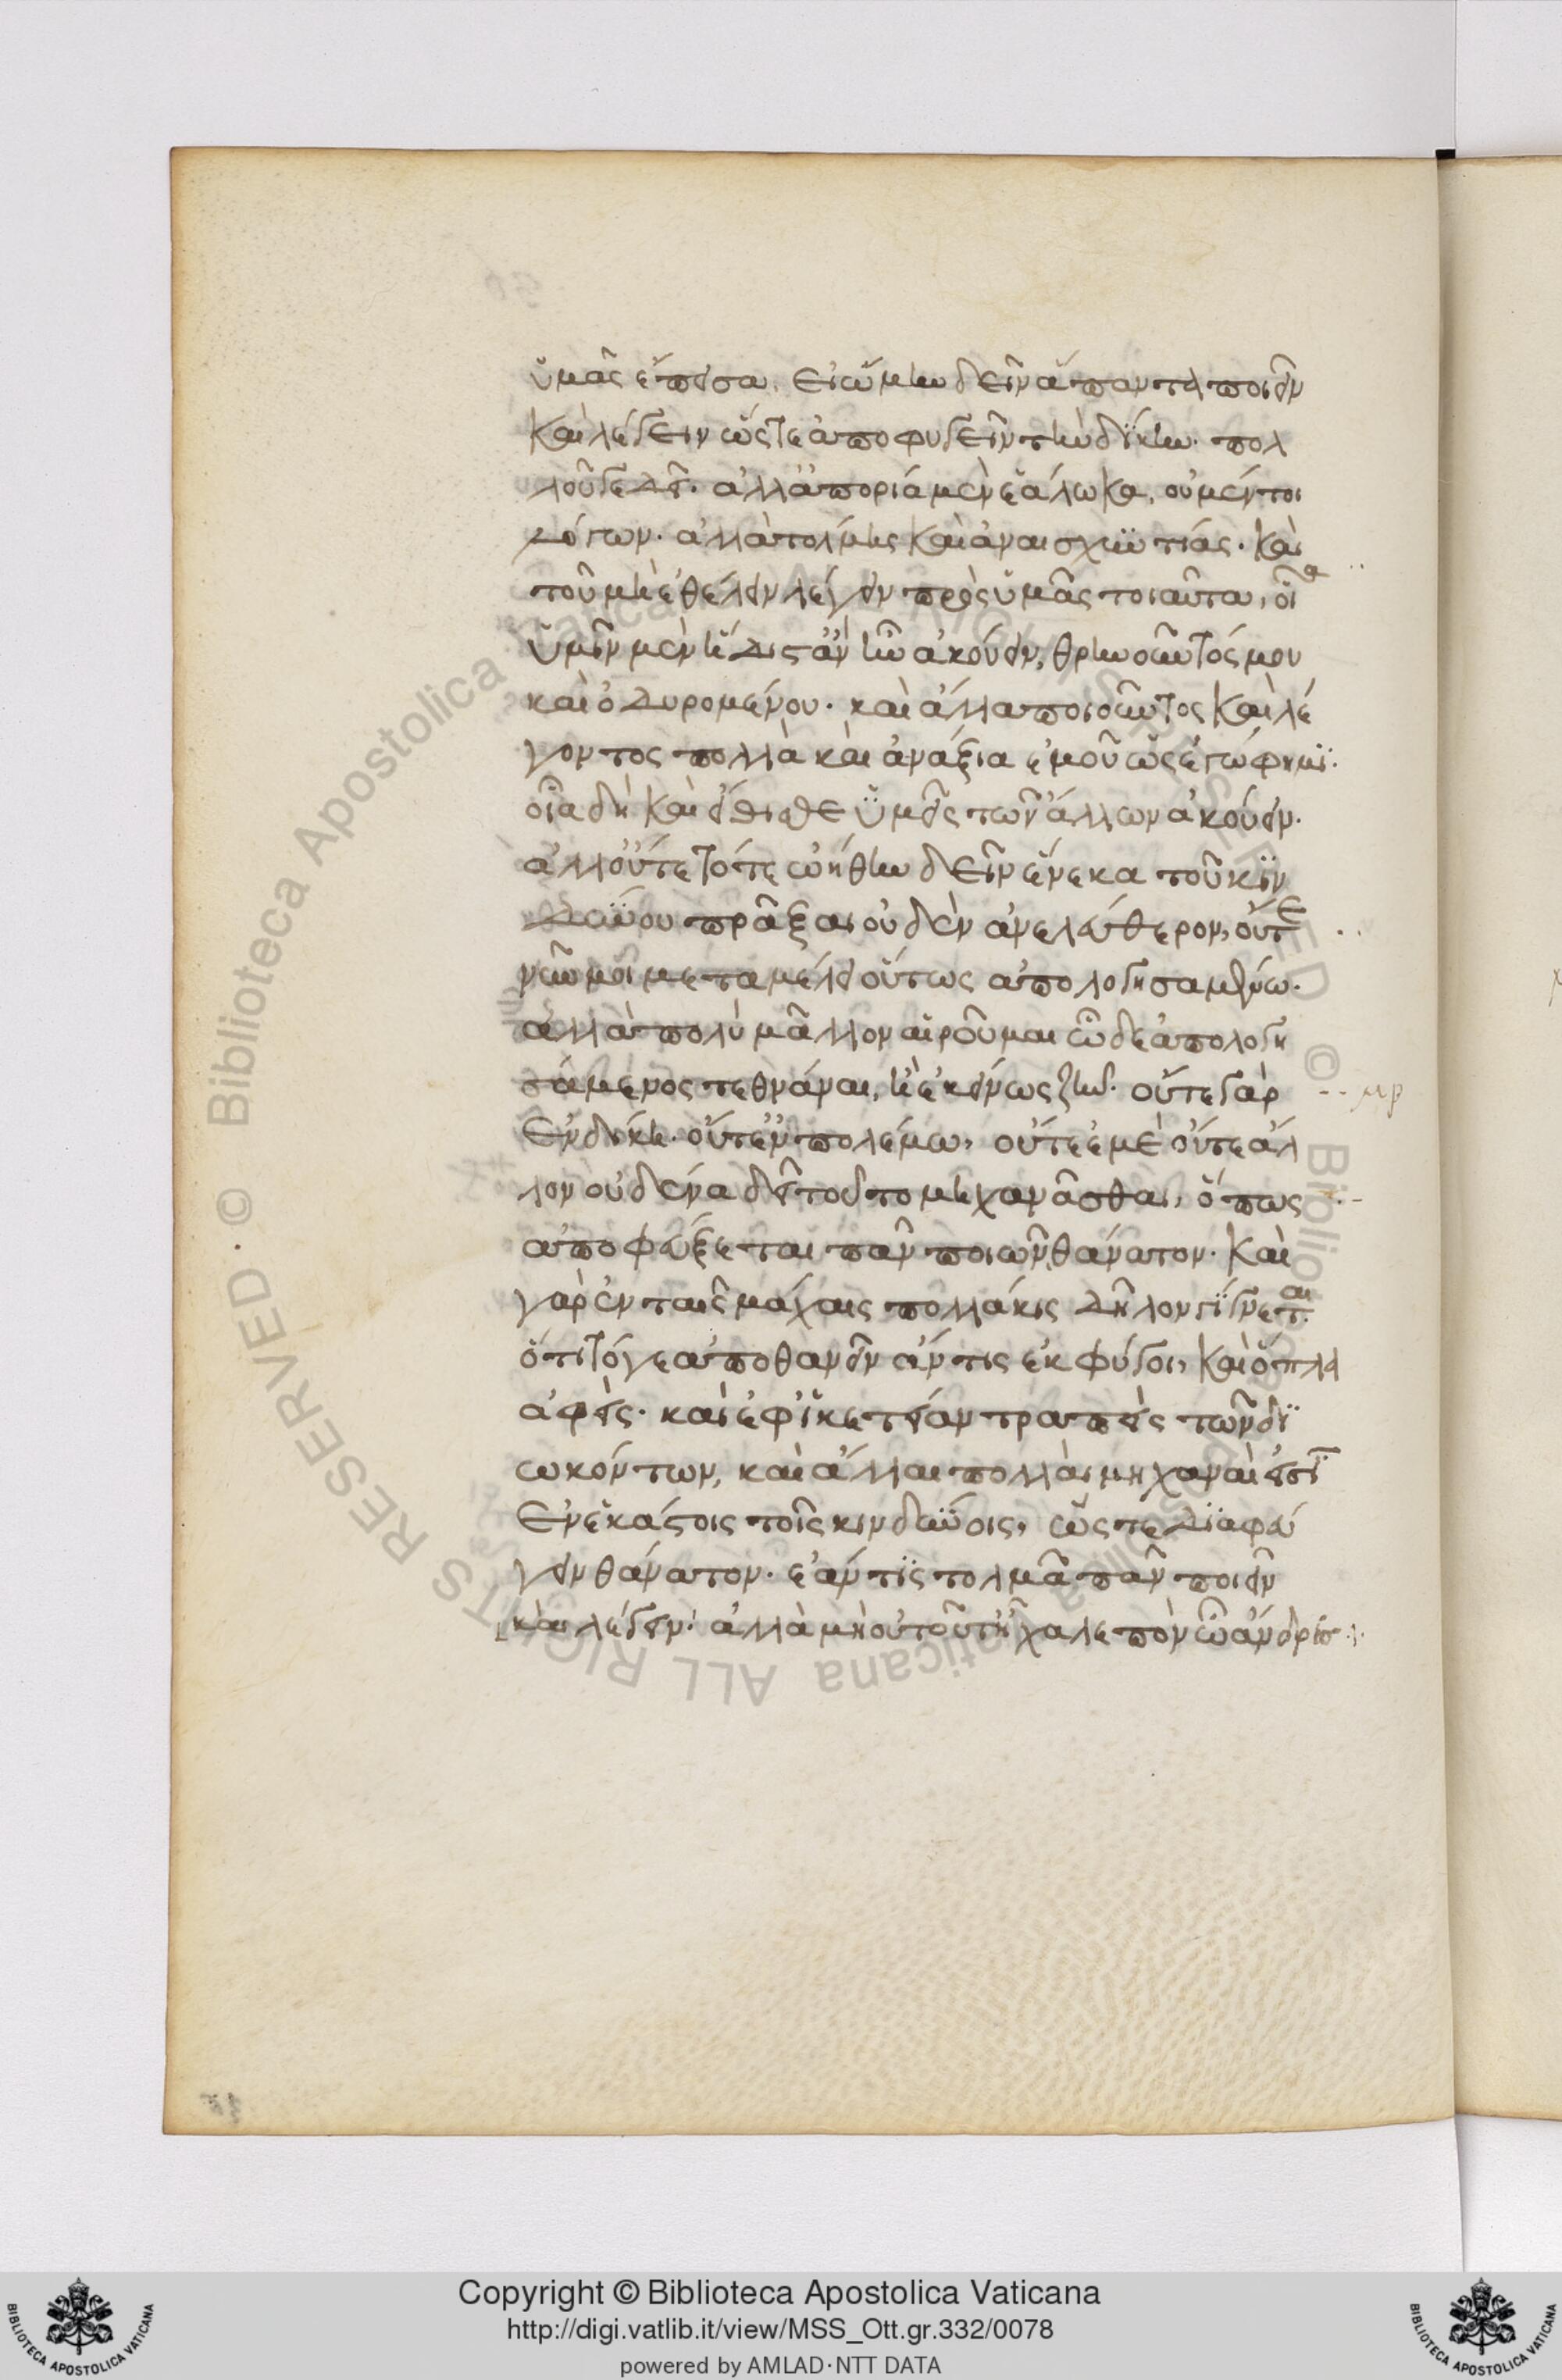 ὑμᾶς ἔπεισα, εἰ ᾤμην δεῖν ἅπαντα ποιεῖν
καὶ λέγειν ὥστε ἀποφυγεῖν τὴν δίκην. πολ
λοῦ γε δεῖ. ἀλλ' ἀπορία μὲν ἑάλωκα, οὐ μέντοι
λόγων. ἀλλὰ τόλμης καὶ ἀναισχυντίας. καὶ
τοῦ μὴ ἐθέλειν λέγειν πρὸς ὑμᾶς τοιαῦτα, οἷα
ὑμῖν μὲν ἥδιστ' ἂν ἦν ἀκούειν, θρηνοῦντός μου
καὶ ὀδυρομένου. καὶ ἄλλα ποιοῦντος καὶ λέ
γοντος πολλὰ καὶ ἀνάξια ἐμοῦ ὡς ἐγώ φημι.
οἷα δὴ καὶ εἴθισθε ὑμεῖς τῶν ἄλλων ἀκούειν.
ἀλλ' οὔτε τότε ᾠήθην δεῖν ἕνεκα τοῦ κιν
δύνου πρᾶξαι οὐδὲν ἀνελεύθερον, οὔτε
νῦν μοι μεταμέλει οὕτως ἀπολογησαμένῳ.
ἀλλὰ πολὺ μᾶλλον αἱροῦμαι ὧδε ἀπολογη
σάμενος τεθνάναι, ἢ ἐκείνως ζῆν. οὔτε γὰρ
ἐν δίκῃ. οὔτ' ἐν πολέμῳ, οὔτε ἐμὲ οὔτε ἄλ
λον οὐδένα δεῖ τοῦτο μηχανᾶσθαι, ὅπως
ἀποφεύξεται πᾶν ποιῶν θάνατον. καὶ
γὰρ ἐν ταῖς μάχαις πολλάκις δῆλον γίγνεται
ὅτι τό γε ἀποθανεῖν ἄν τις ἐκφύγοι, καὶ ὅπλα
ἀφεὶς. καὶ ἐφ' ἱκετείαν τραπεὶς τῶν δι
ωκόντων, καὶ ἄλλαι πολλαὶ μηχαναὶ εἰσὶ
ἐν ἑκάστοις τοῖς κινδύνοις, ὥστε διαφεύ
γειν θάνατον. ἐάν τις τολμᾶ πᾶν ποιεῖν
καὶ λέγειν. ἀλλὰ μὴ οὐ τοῦτ' ἦ χαλεπὸν ὦ ἄνδρες
© Biblioteca Apostolica Vaticana ALL RIGHTS RESERVED · © Biblioteca Apostolica Vaticana ALL RIGHTS RESERVED ·
Copyright © Biblioteca Apostolica Vaticana
http://digi.vatlib.it/view/MSS_Ott.gr.332/0078
powered by AMLAD·NTT DATA
BIBLIOTECA APOSTOLICA VATICANA
BIBLIOTECA APOSTOLICA VATICANA